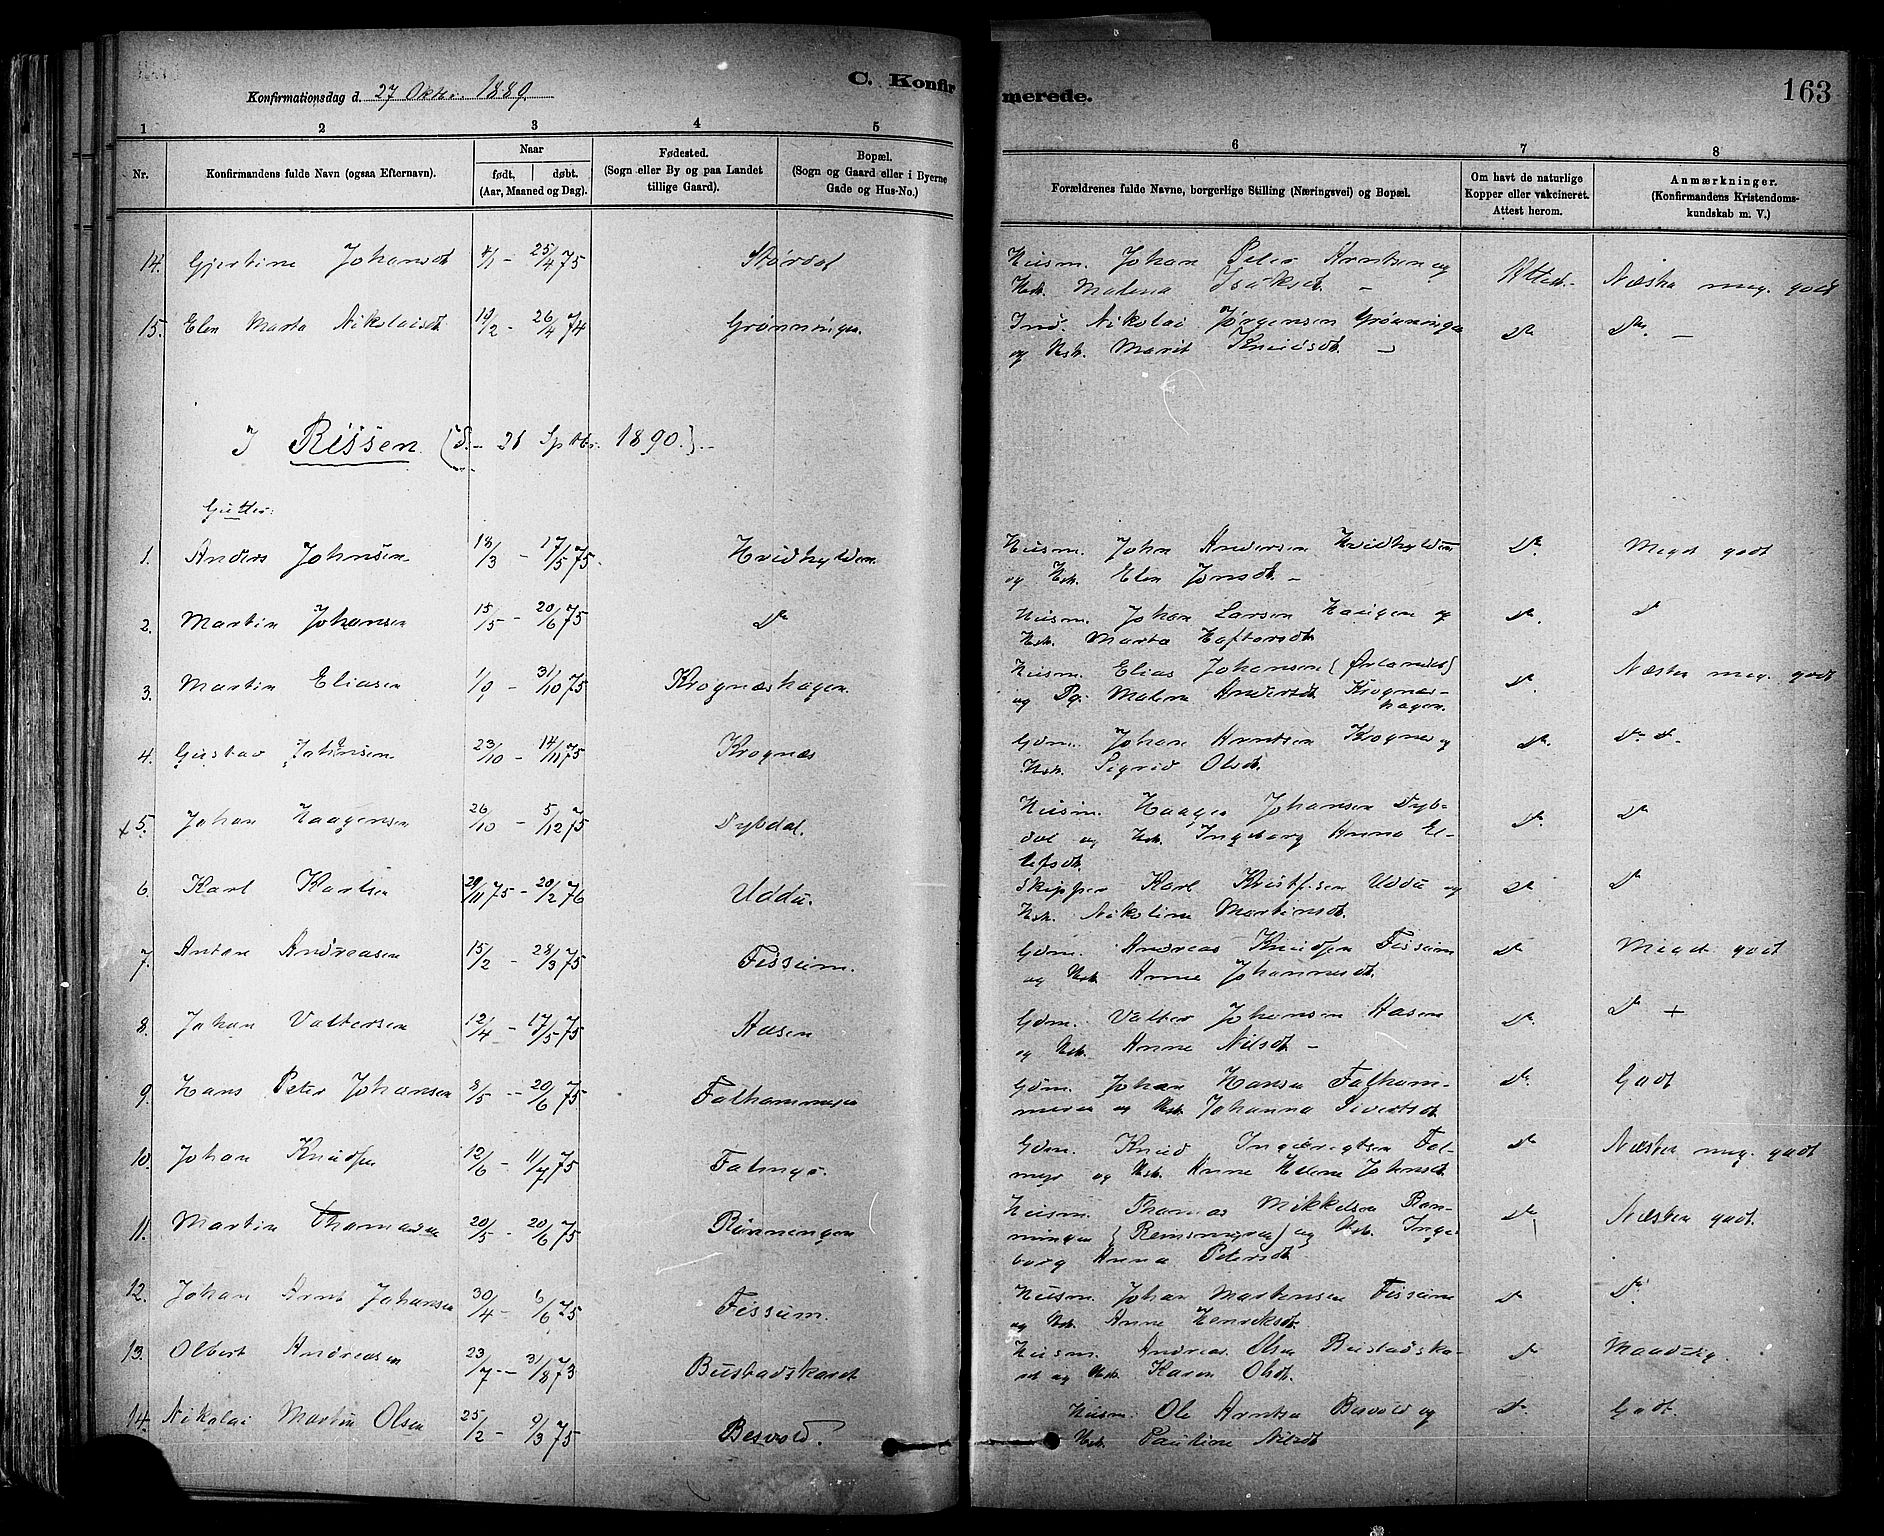 Konfirmationsdag d. 27 Oktbr. 1889.
C. Konfirmerede.
163
1 2 3 4 5 6 7 8
Nr.
Konfirmandens fulde Navn (ogsaa Efternavn).
Naar
født. døbt.
(Aar, Maaned og Dag).
Fødested.
(Sogn eller By og paa Landet
tillige Gaard).
Bopæl.
(Sogn og Gaard eller i Byerne
Gade og Hus-No.)
Forældrenes fulde Navne, borgerlige Stilling (Næringsvei) og Bopæl.
Om havt de naturlige
Kopper eller vakcineret.
Attest herom.
Anmærkninger.
(Konfirmandens Kristendoms-
kundskab m. V.)
14. Gjertine Johansdt 4/1 - 25/4 75 Størdal Husm. Johan Peter Arntsen og Atted. Næsten meg. godt
Hstr. Malena Isaksdt. -
15. Elen Marta Nikolaisdt 19/2 - 26/4 74 Grønningen. Ind. Nikolai Jørgensen Grønningen Do Do -
og Hstr. Marit Knudsdt. -
I Rissen (d. - 21 Sptbr. 1890.) -
Gutter:
1. Anders Johnsen 18/3 - 17/5 75. Hvidhylden Husm. John Andersen Hvidhylden Do Meget godt
og Hstr. Elen Jonsdt. -
2. Martin Johansen 15/5 - 20/6 75 Do Husm. Johan Larsen Haugen og Do. Do
Hstr. Marta Haftorsdt.
3. Martin Eliasen 1/9 - 31/10 75 Krognæshagen. Husm. Elias Johansen (Ørlandet) Do. Næsten meg. godt
og Pg. Malena Andersdt Krognæs-
hagen.
4. Gustav Johansen 23/10 - 14/11 75 Krognæs Gdm. Johan Arntsen Krognæs og Do. Do Do.
Hstr. Sigrid Olsdt.
+5. Johan Haagensen 26/10 - 5/12 75 Dybdal. Husm. Haagen Johansen Dyb- Do. Do
dal og Hstr. Ingeborg Anna El-
lefsdt.
6. Karl Karlsen 29/11 75 - 20/2 76 Uddu. Skipper Karl Kristfsen Uddu og Do Do
Hstr. Nikoline Martinsdt.
7. Anton Andreasen 15/2 - 28/3 75 Fissum. Gdm. Andreas Knudsen Fissum Do Meget godt
og Hstr. Anne Johannesdt.
8. Johan Valtersen 12/4 - 17/5 75 Hasen Gdm. Valter Johansen Hasen Do. Do +
og Hstr. Anne Nilsdt -
9. Hans Peter Johansen 3/5 - 20/6 75 Falhammeren Gdm. Johan Hansen Falham- Do. Godt
meren og Hstr. Johanna Sivertsdt.
10. Johan Knudsen 12/6 - 11/7 75 Gdm. Knud Ingebrigtsen Do Næsten meg. godt
og Hstr. Anne Helena Johansdt.
11. Martin Thomassen 20/5 - 20/6 75 Rønningen Husm. Thomas Mikkelsen Røn- Do. Næsten godt.
ningen og Hstr. Inge-
borg Anna Petersdt
12. Johan Arnt Johansen 30/4 - 6/6 75 Fissum. Husm. Johan Martensen Fissum Do Do.
og Hstr. Anne Henriksdt.
13. Olbert Andreasen 23/7 - 31/8 73 Bustadskaret Husm. Andreas Olsen Bustadska- Do Maadelig.
ret og Hstr. Karen Olsdt.
14. Nikolai Martin Olsen 25/2 - 9/3 75 Besvold. Husm. Ole Arntsen Besvold og Do Godt.
Hstr. Pauline Nilsdt